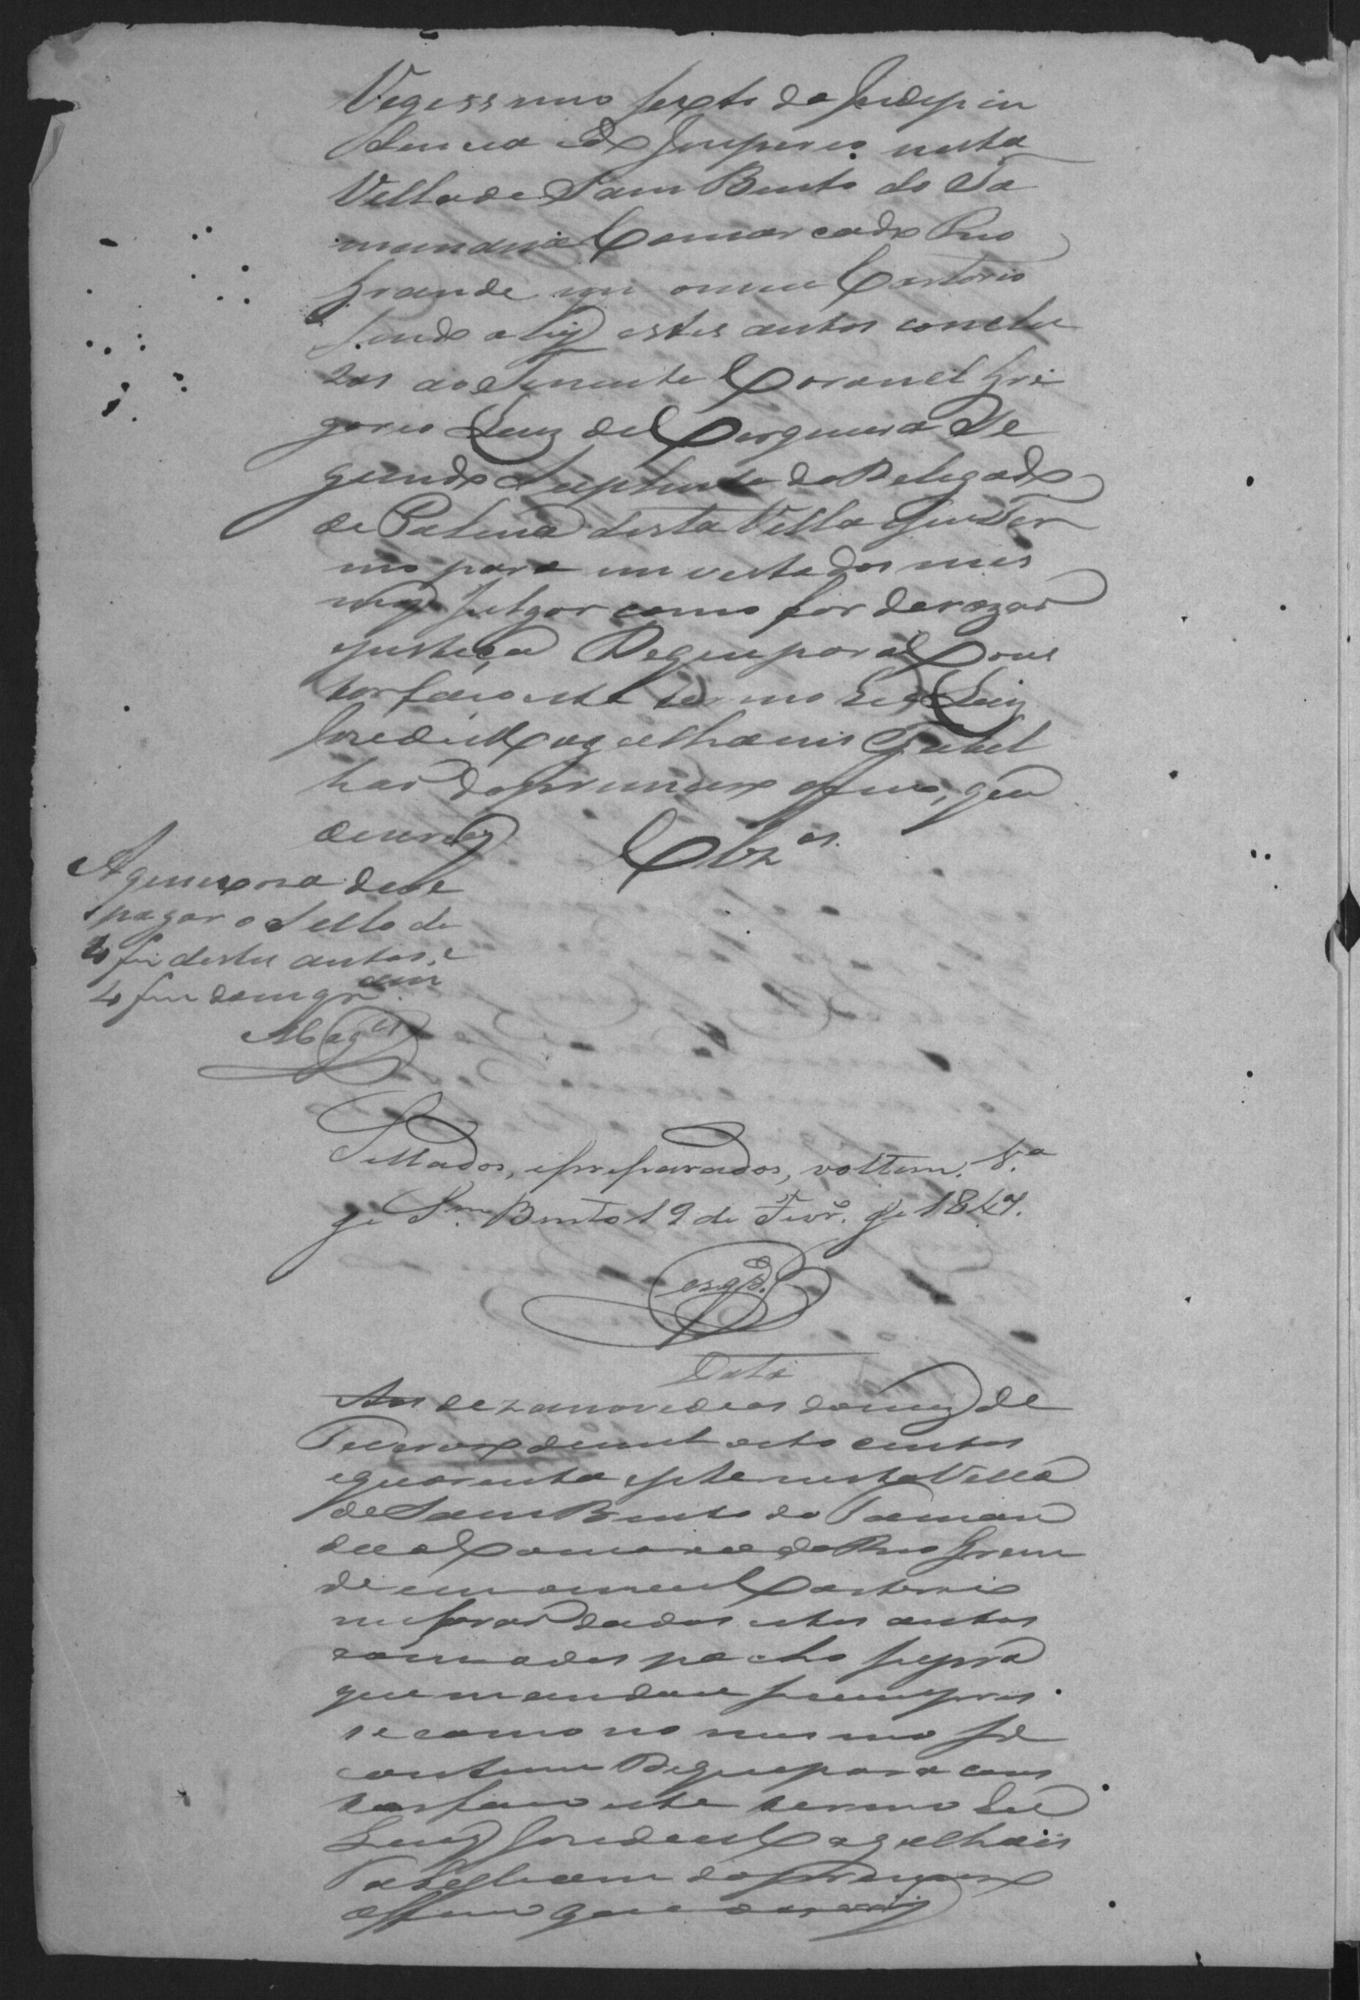 Vegessimo sexto da Indepen
dencia edo Imperio nesta
Villa de Sam Bento do Ta
mandua Comarca do Rio
Grande em omeu Cartorio
sendo ahy estes autos conclu
zos ao Tenente Coronel Gre
gorio Luiz de Cerqueira Se
gundo Suplente do Delegado
de Polecia desta Villa Seu Ter
mo para em vesta dos mes
mos Julgar como for derazaõ
ejustiça Dequepara Cons
tar faço este termo Eu Luiz
Jozé de Magalhaens Tabel
liaõ do primeiro oficio, que
oescrevy
Clz.os
Aquexoza deve
pagar o Sello de
4 fls destes autos, e
4 fls do
Mag.es
Sellados, epreparados, voltem. V.a
de S.m Bento 19 de Fevr.o de 1847.
Cerqr.a
Data
Aos dezanove dias domez de
Fevereiro demil oito centos
equarenta esete nesta Villa
de Sam Bento do Taman
dua Comarca do Rio Gran
de em omeu Cartorio
me foraõ dados estes autos
com o despacho supra
que mandou secumpris
se como no mesmo se
contem Dequepara cons
tar faço este termo Eu
Luiz Jozé de Magalhais
Tabelliam do primeiro
officio que oescrevy